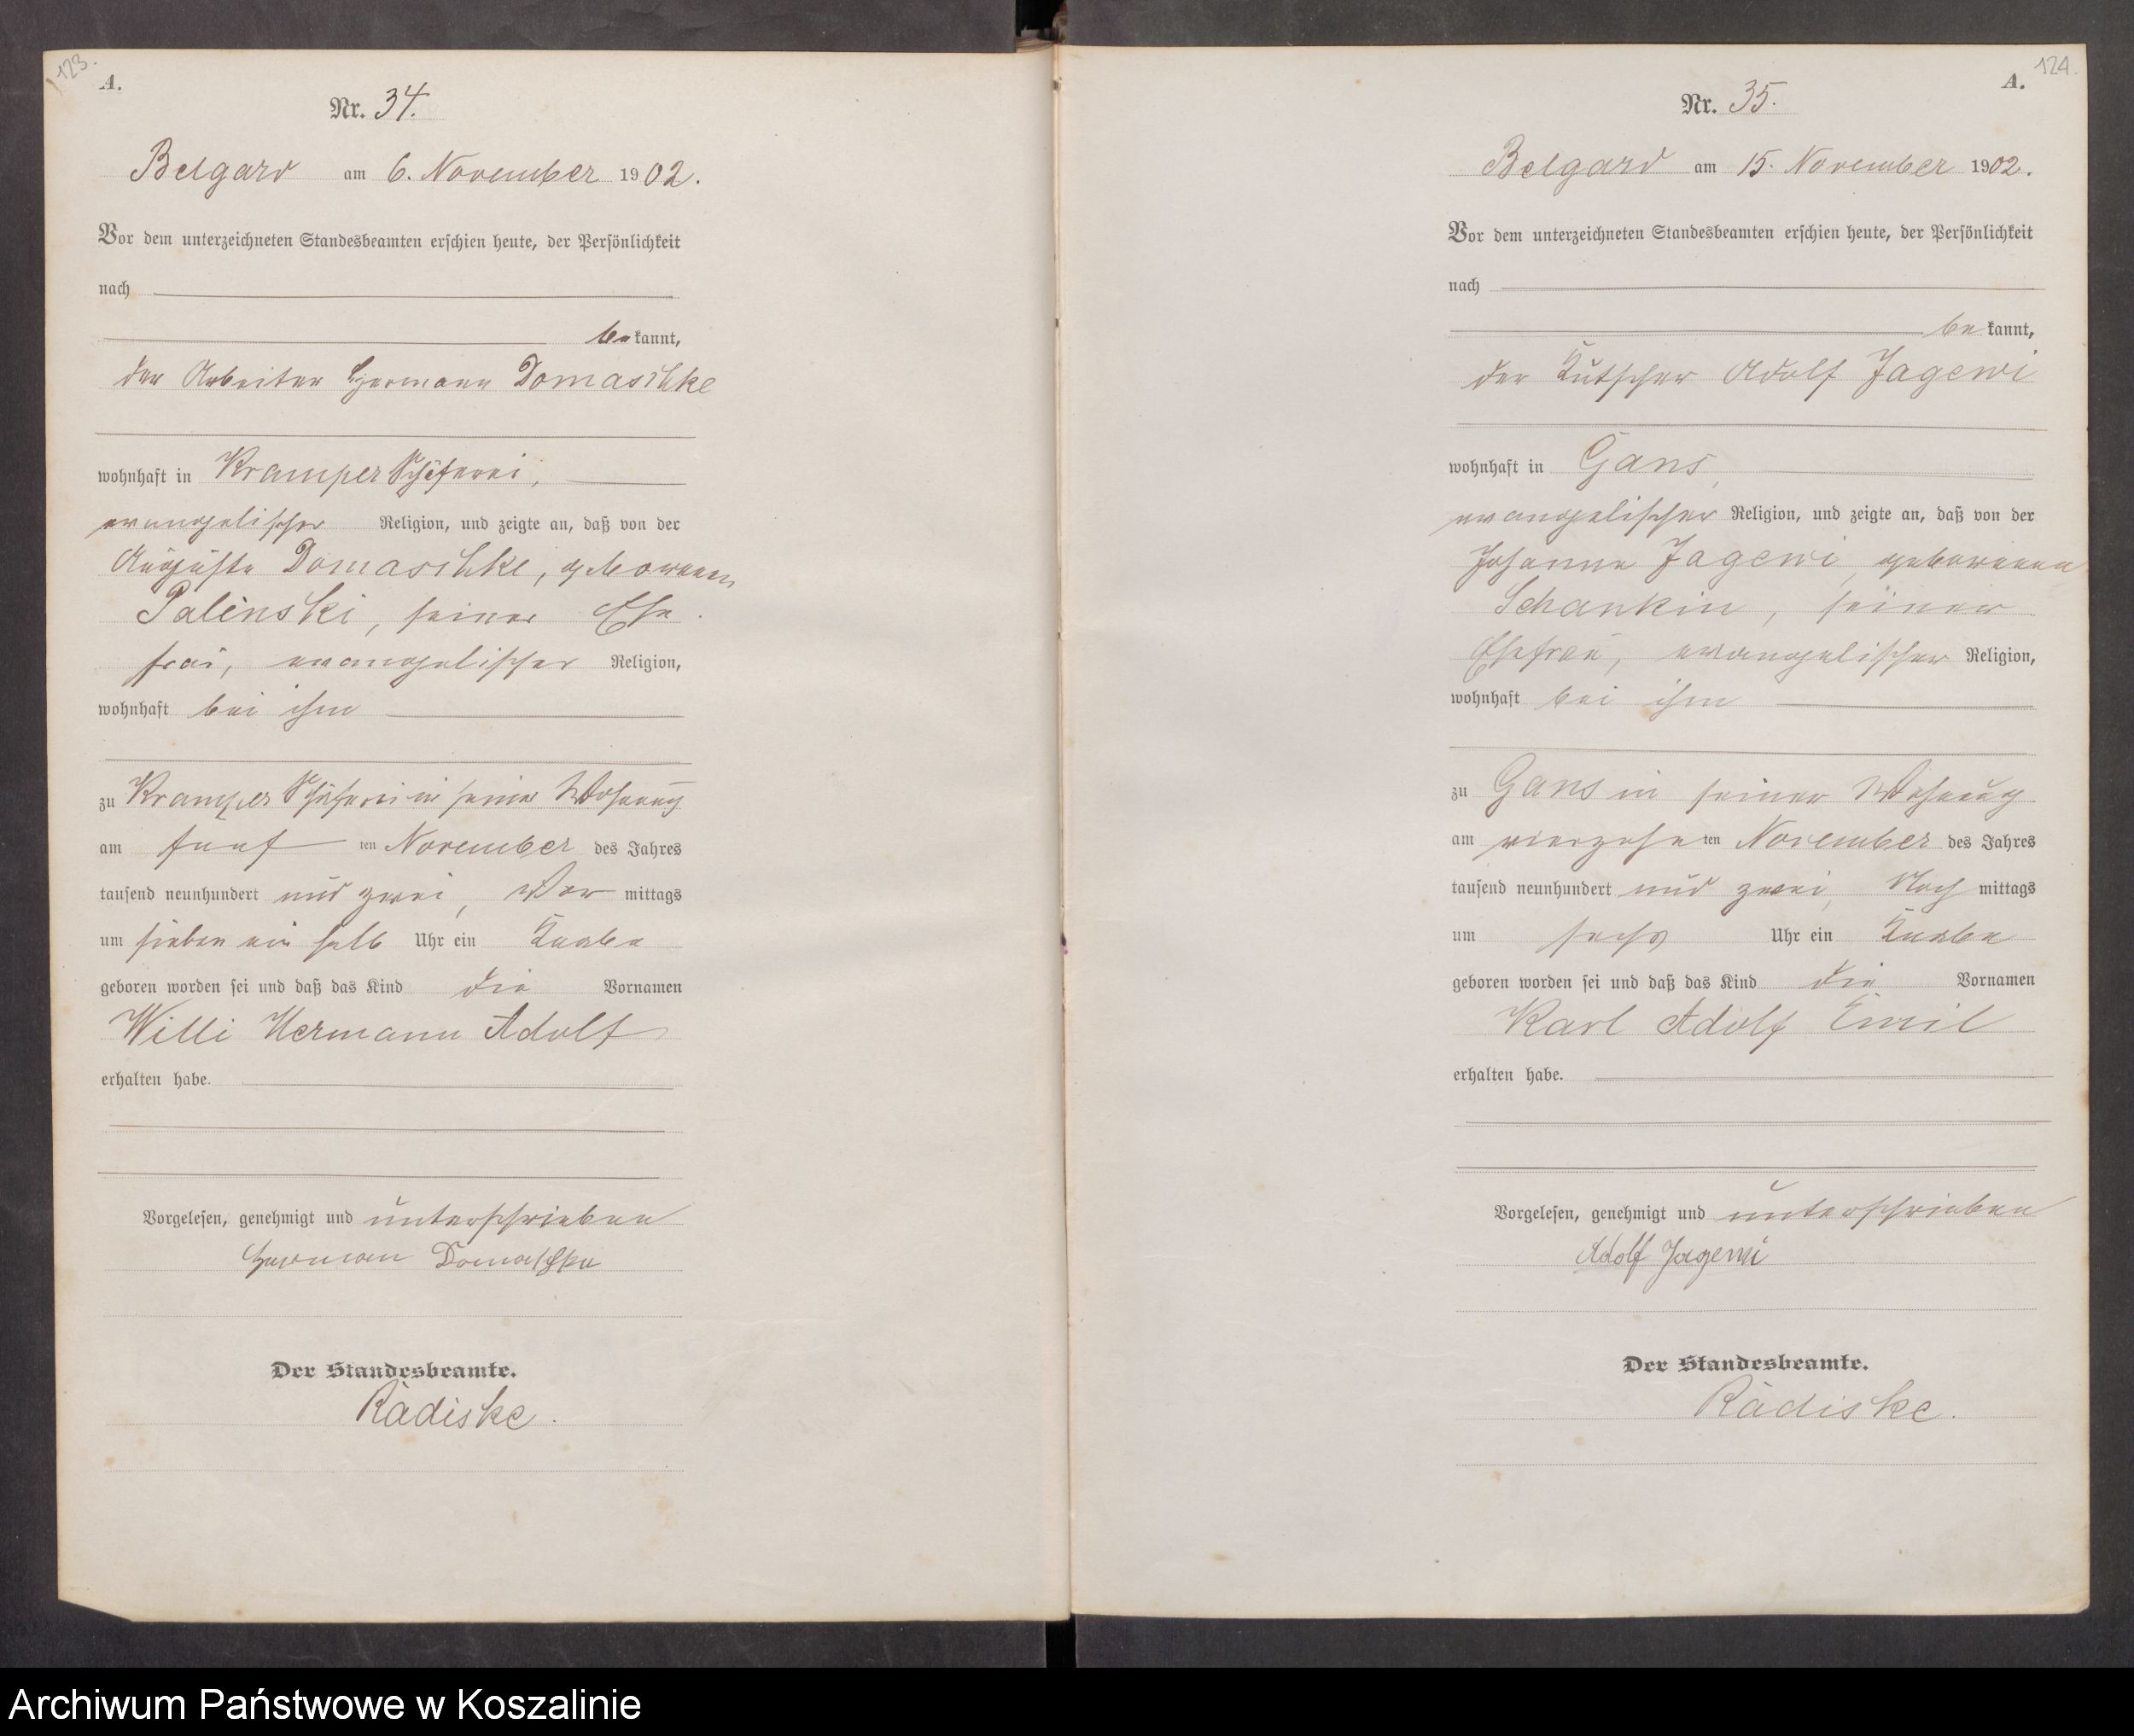 123.
A.
Nr. 34.
Belgard am 6. November 1902.
Vor dem unterzeichneten Standesbeamten erschien heute, der Persönlichkeit
nach
bekannt,
der Arbeiter Hermann Domaschke
wohnhaft in Kramper Schäferei,
evangelischer Religion, und zeigte an, daß von der
Auguste Domaschke, geborenen
Palinski, seiner Ehe
frau, evangelischer Religion,
wohnhaft bei ihm
zu Kramper Schäferei in seiner Wohnung
am fünf ten November des Jahres
tausend neunhundert und zwei, Vor mittags
um sieben ein halb Uhr ein Knabe
geboren worden sei und daß das Kind die Vornamen
Willi Hermann Adolf
erhalten habe.
Vorgelesen, genehmigt und unterschrieben
Herman Domaschke
Der Standesbeamte.
Rädiske.
124.
A.
Nr. 35.
Belgard am 15. November 1902.
Vor dem unterzeichneten Standesbeamten erschien heute, der Persönlichkeit
nach
bekannt,
der Kutscher Adolf Jagewi
wohnhaft in Gans,
evangelischer Religion, und zeigte an, daß von der
Johanna Jagewi, geborenen
Schankin, seiner
Ehefrau, evangelischer Religion,
wohnhaft bei ihm
zu Gans in seiner Wohnung
am vierzehn ten November des Jahres
tausend neunhundert und zwei, Nach mittags
um sechs Uhr ein Knabe
geboren worden sei und daß das Kind die Vornamen
Karl Adolf Emil
erhalten habe.
Vorgelesen, genehmigt und unterschrieben
Adolf Jagewi
Der Standesbeamte.
Rädiske.
Archiwum Państwowe w Koszalinie